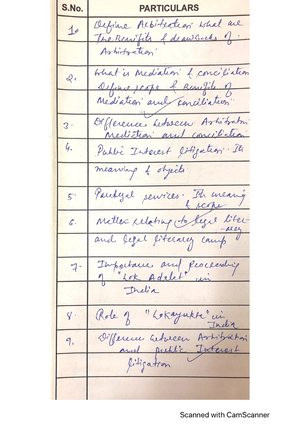 S.No. PARTICULARS
1. Define Arbitration what are
The Benifits & drawbacks of
Arbitration
2. What is Mediation & conciliation
Define scope & Benifits of
Mediation and conciliation
3. Difference between Arbitration
Mediation and conciliation
4. Public Interest Litigation - Its
meaning & objects
5. Paralegal services - Its meaning
& scope
6. Matter relating to legal liter-
acy
and legal literacy camp
7. Importance and Proceeding
of "Lok Adalat" in
India
8. Role of "Lokayukta" in
India
9. Difference between Arbitration
and Public Interest
Litigation
Scanned with CamScanner